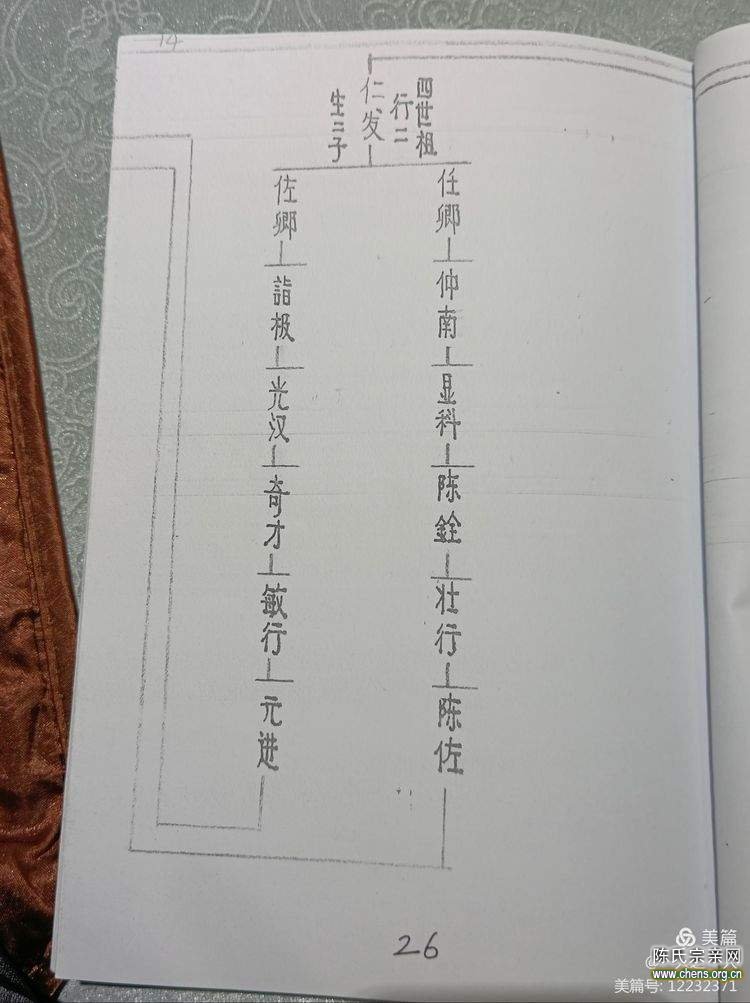 14
四世祖
行二
仁发
生二子
任卿
仲南
显科
陈銓
壮行
陈佐
佐卿
詣极
光汉
奇才
敏行
元进
26
美篇
陈氏宗亲网
www.chens.org.cn
美篇号: 12232371